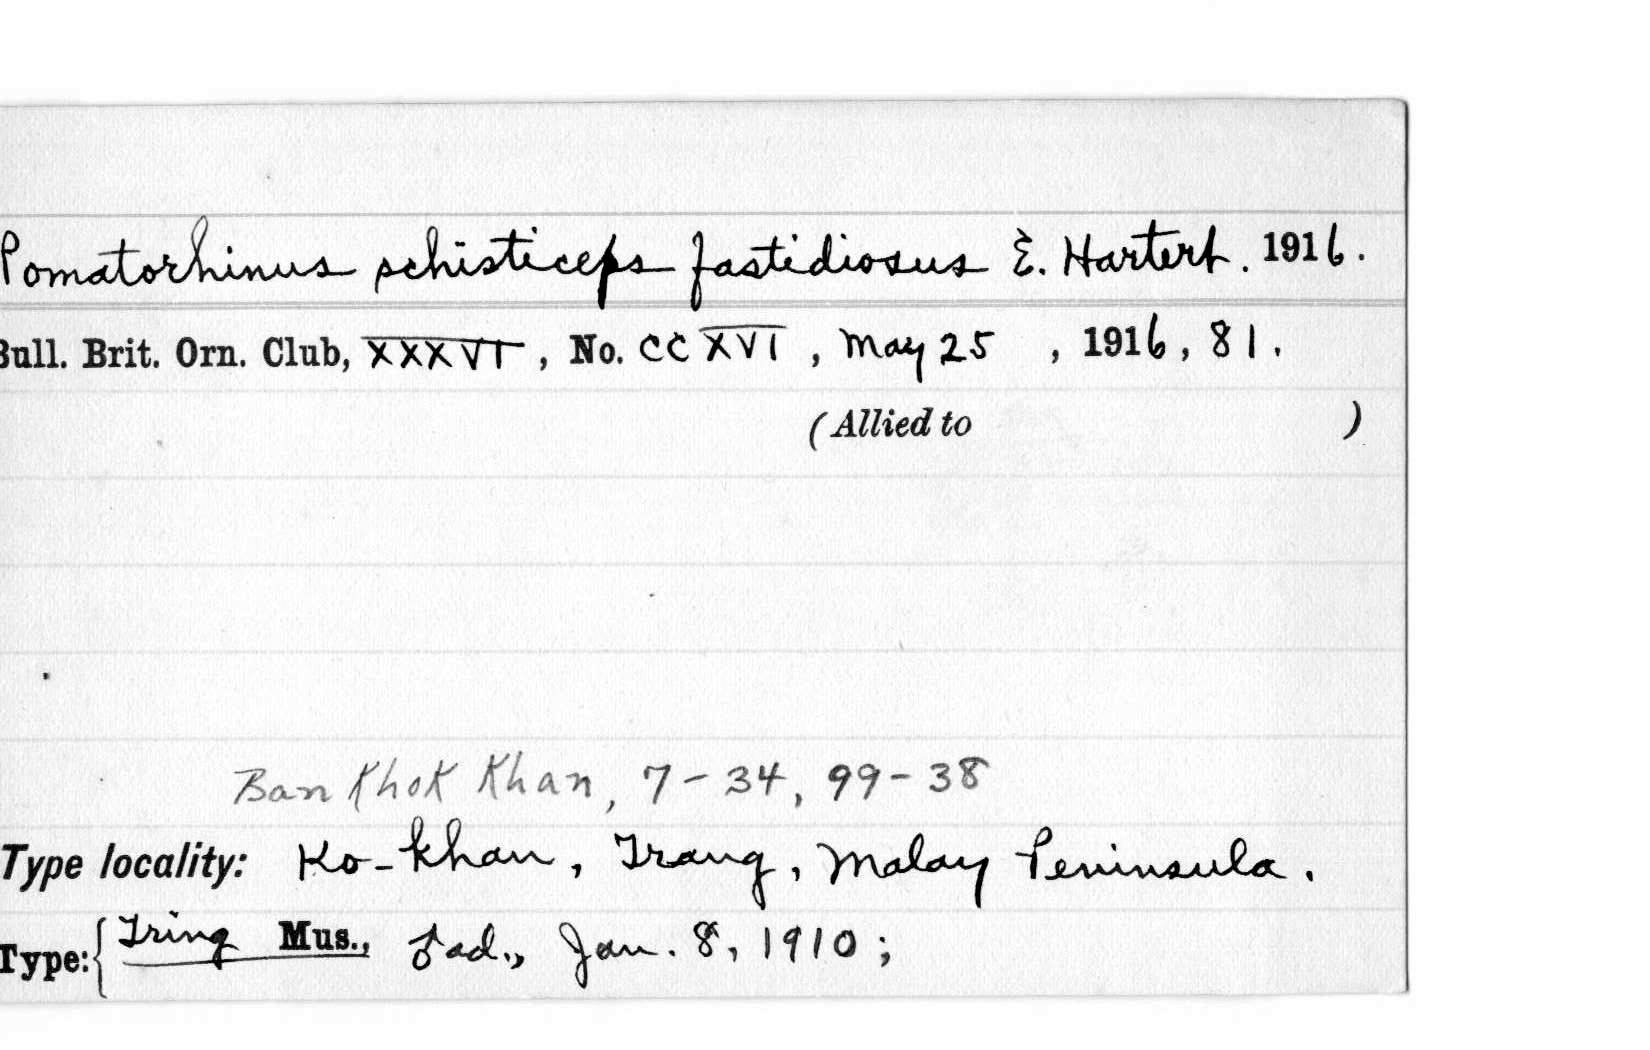 Pomatorhinus schisticeps fastidiosus E. Hartert. 1916.
Bull. Brit. Orn. Club, XXXVI, No. CCXVI, May 25, 1916, 81.
(Allied to )
Ban Khok Khan, 7-34, 99-38
Type locality: Ko-khan, Trang, Malay Peninsula.
Type: { Tring Mus., ♂ ad., Jan. 8, 1910;